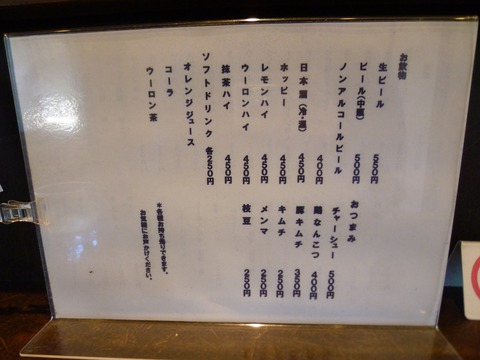 お飲物
生ビール 550円
ビール(中瓶) 500円
ノンアルコールビール
400円
日本酒(冷・温) 450円
ホッピー 450円
レモンハイ 450円
ウーロンハイ 450円
抹茶ハイ 450円
ソフトドリンク 各250円
オレンジジュース
コーラ
ウーロン茶
おつまみ
チャーシュー 500円
鶏なんこつ 400円
豚キムチ 350円
キムチ 250円
メンマ 250円
枝豆 250円
*各種お持ち帰りできます。
お気軽にお声かけください。